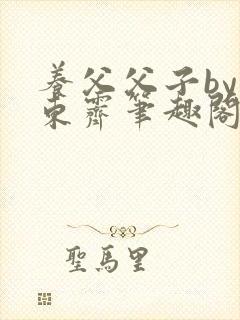 養父父子by
東霽筆趣閣
聖馬里